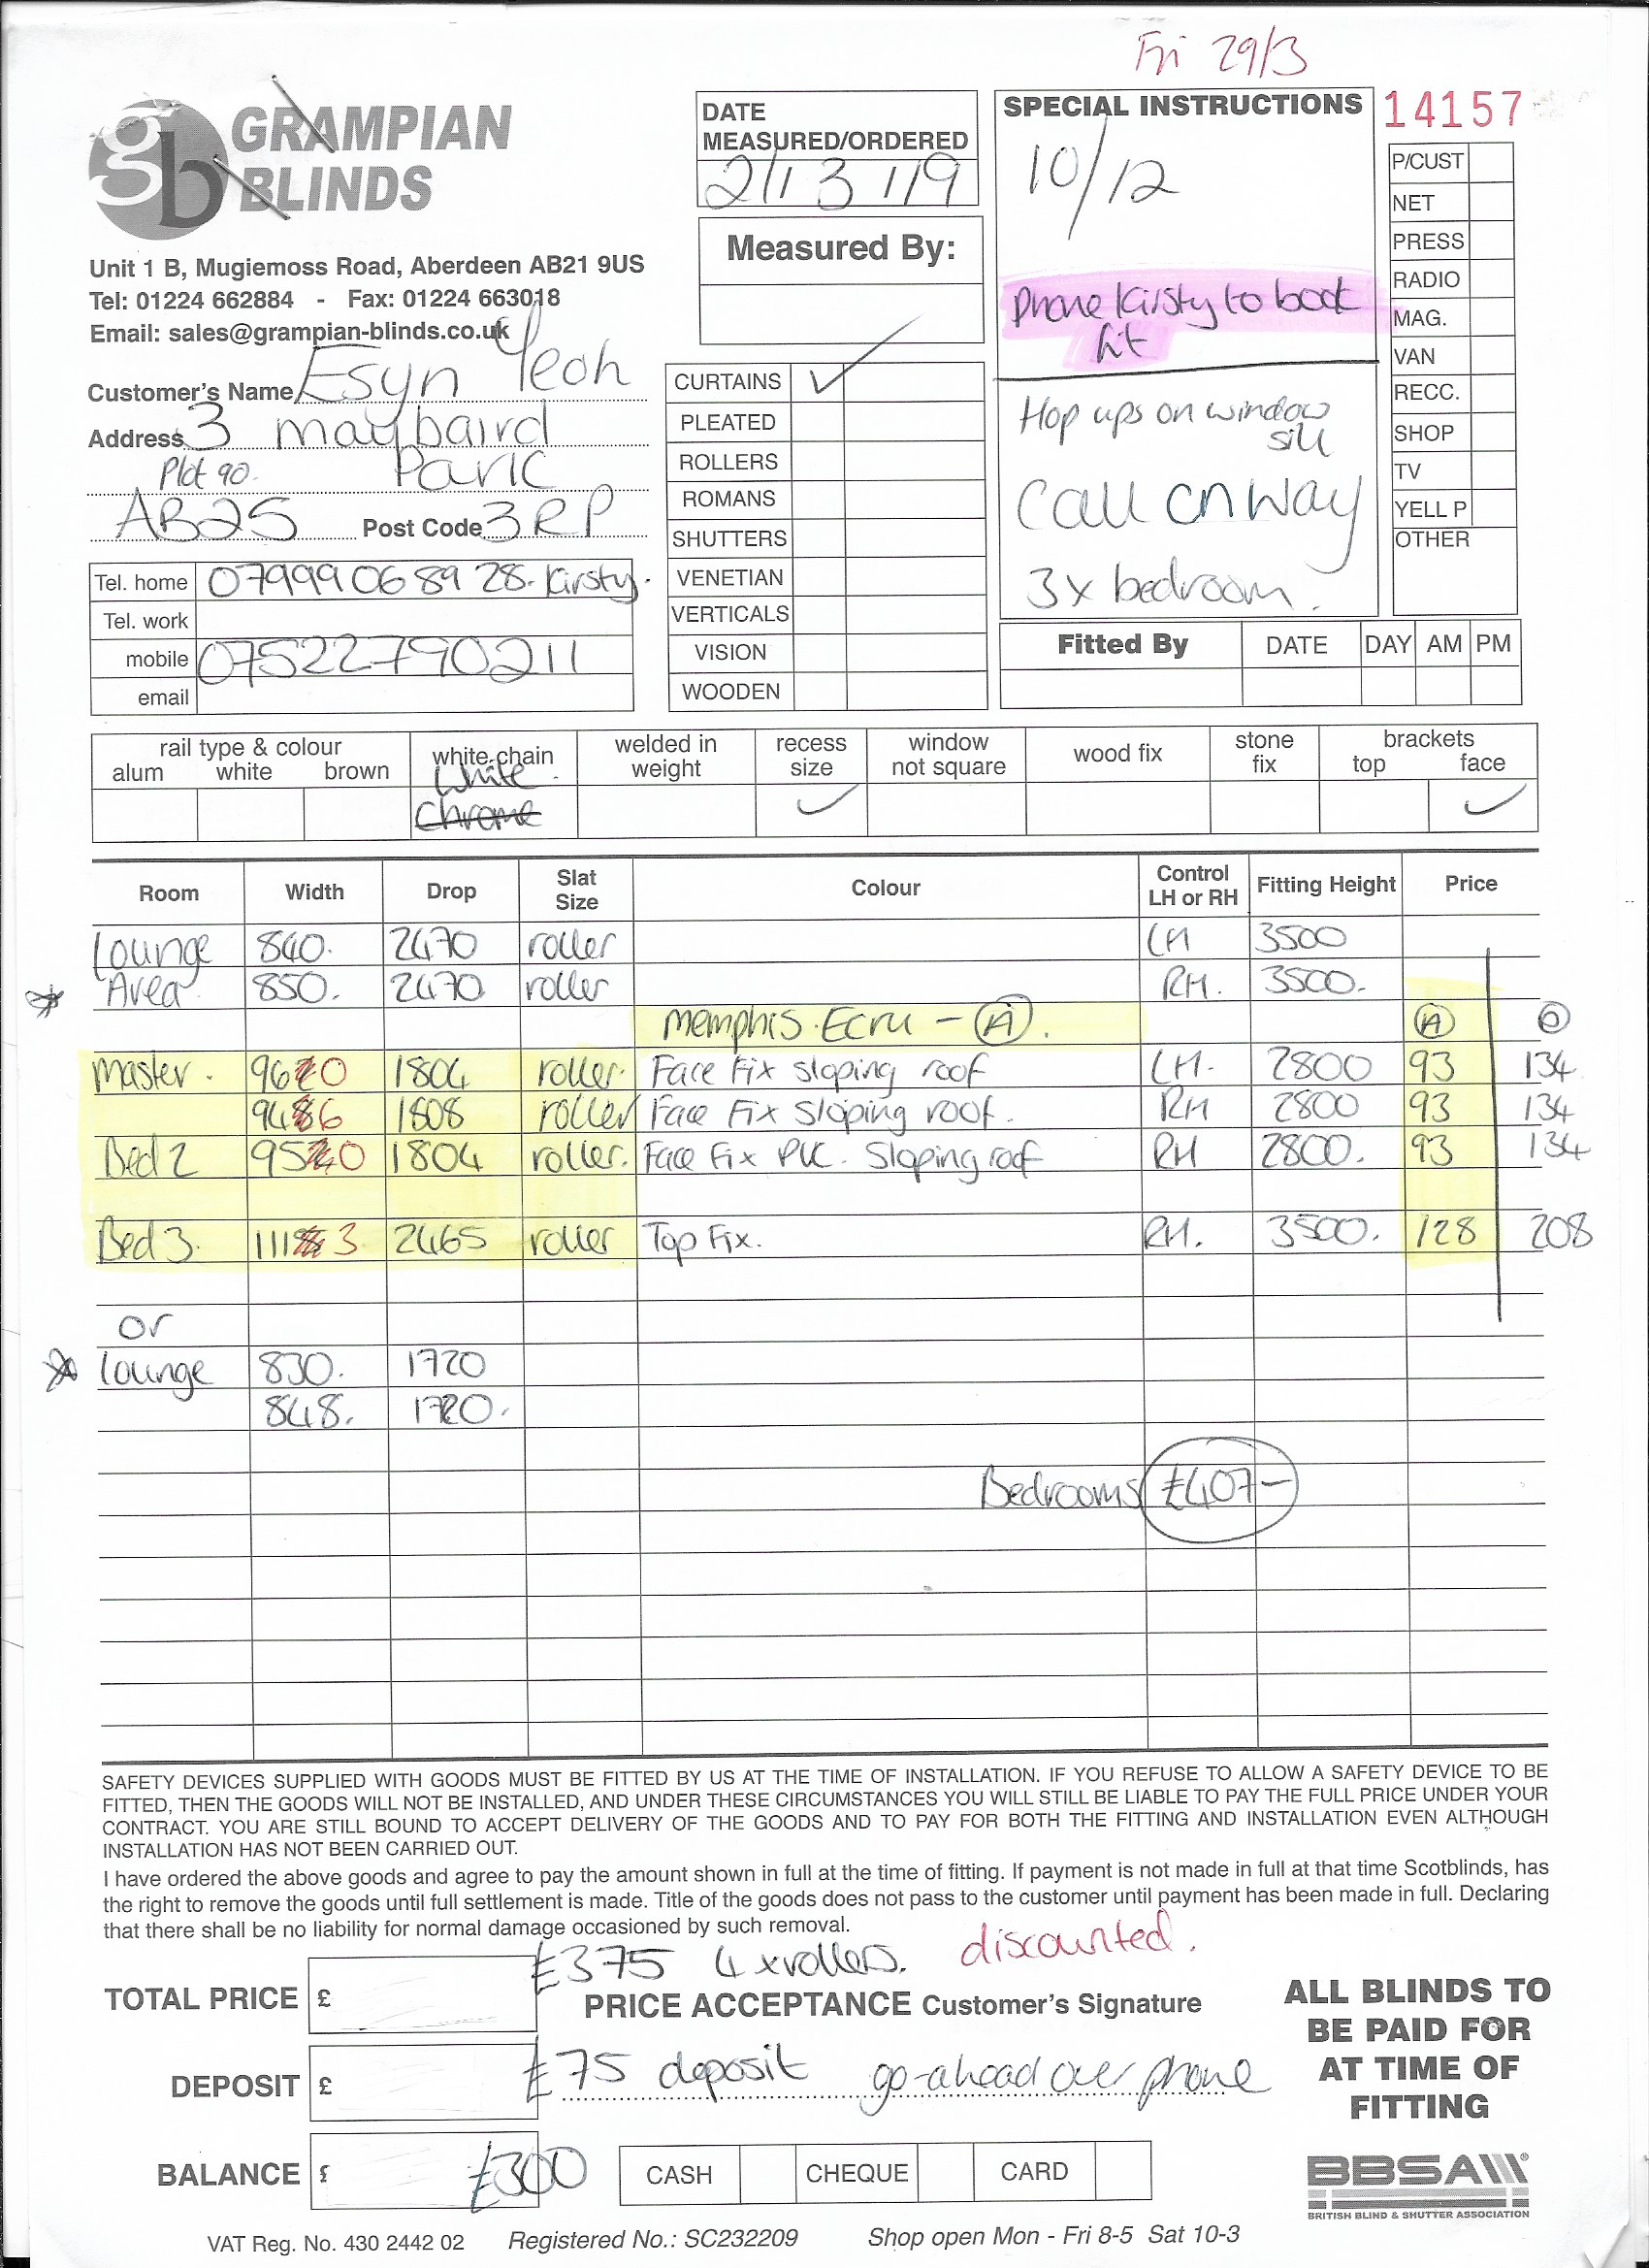 Fri 29/3
GRAMPIAN
BLINDS
Unit 1 B, Mugiemoss Road, Aberdeen AB21 9US
Tel: 01224 662884 - Fax: 01224 663018
Email: sales@grampian-blinds.co.uk
Customer's Name Esyn Yeoh
Address 3 maybaird
Plot 90. Park
AB25 Post Code 3RP
Tel. home 07999068928. Kirsty.
Tel. work
mobile 07522790211
email
DATE
MEASURED/ORDERED
21/3/19
Measured By:
CURTAINS ✓
PLEATED
ROLLERS
ROMANS
SHUTTERS
VENETIAN
VERTICALS
VISION
WOODEN
SPECIAL INSTRUCTIONS
10/12
Phone Kirsty to book
fit
Hop ups on window
sill
Call on way
3x bedroom.
14157
P/CUST
NET
PRESS
RADIO
MAG.
VAN
RECC.
SHOP
TV
YELL P
OTHER
Fitted By DATE DAY AM PM
rail type & colour white chain welded in recess window wood fix stone brackets
alum white brown White weight size not square fix top face
Chrome ✓ ✓
Room Width Drop Slat Size Colour Control LH or RH Fitting Height Price
Lounge 840. 2470 roller LH 3500
Area 850. 2470 roller RH. 3500.
Memphis Ecru - A. A
Master. 960 1804 roller. Face Fix sloping roof LH. 2800 93 134
946 1808 roller Face Fix Sloping roof. RH 2800 93 134
Bed 2 950 1804 roller. Face Fix PVC. Sloping roof RH 2800. 93 134
Bed 3. 1113 2465 roller Top Fix. RH. 3500. 128 208
or
lounge 830. 1720
848. 1720.
Bedrooms £407-
SAFETY DEVICES SUPPLIED WITH GOODS MUST BE FITTED BY US AT THE TIME OF INSTALLATION. IF YOU REFUSE TO ALLOW A SAFETY DEVICE TO BE
FITTED, THEN THE GOODS WILL NOT BE INSTALLED, AND UNDER THESE CIRCUMSTANCES YOU WILL STILL BE LIABLE TO PAY THE FULL PRICE UNDER YOUR
CONTRACT. YOU ARE STILL BOUND TO ACCEPT DELIVERY OF THE GOODS AND TO PAY FOR BOTH THE FITTING AND INSTALLATION EVEN ALTHOUGH
INSTALLATION HAS NOT BEEN CARRIED OUT.
I have ordered the above goods and agree to pay the amount shown in full at the time of fitting. If payment is not made in full at that time Scotblinds, has
the right to remove the goods until full settlement is made. Title of the goods does not pass to the customer until payment has been made in full. Declaring
that there shall be no liability for normal damage occasioned by such removal.
£375 4 x rollers. discounted.
TOTAL PRICE £
PRICE ACCEPTANCE Customer's Signature
DEPOSIT £ £75 deposit go-ahead over phone
BALANCE £ £300
CASH CHEQUE CARD
ALL BLINDS TO
BE PAID FOR
AT TIME OF
FITTING
BBSA
BRITISH BLIND & SHUTTER ASSOCIATION
VAT Reg. No. 430 2442 02 Registered No.: SC232209 Shop open Mon - Fri 8-5 Sat 10-3